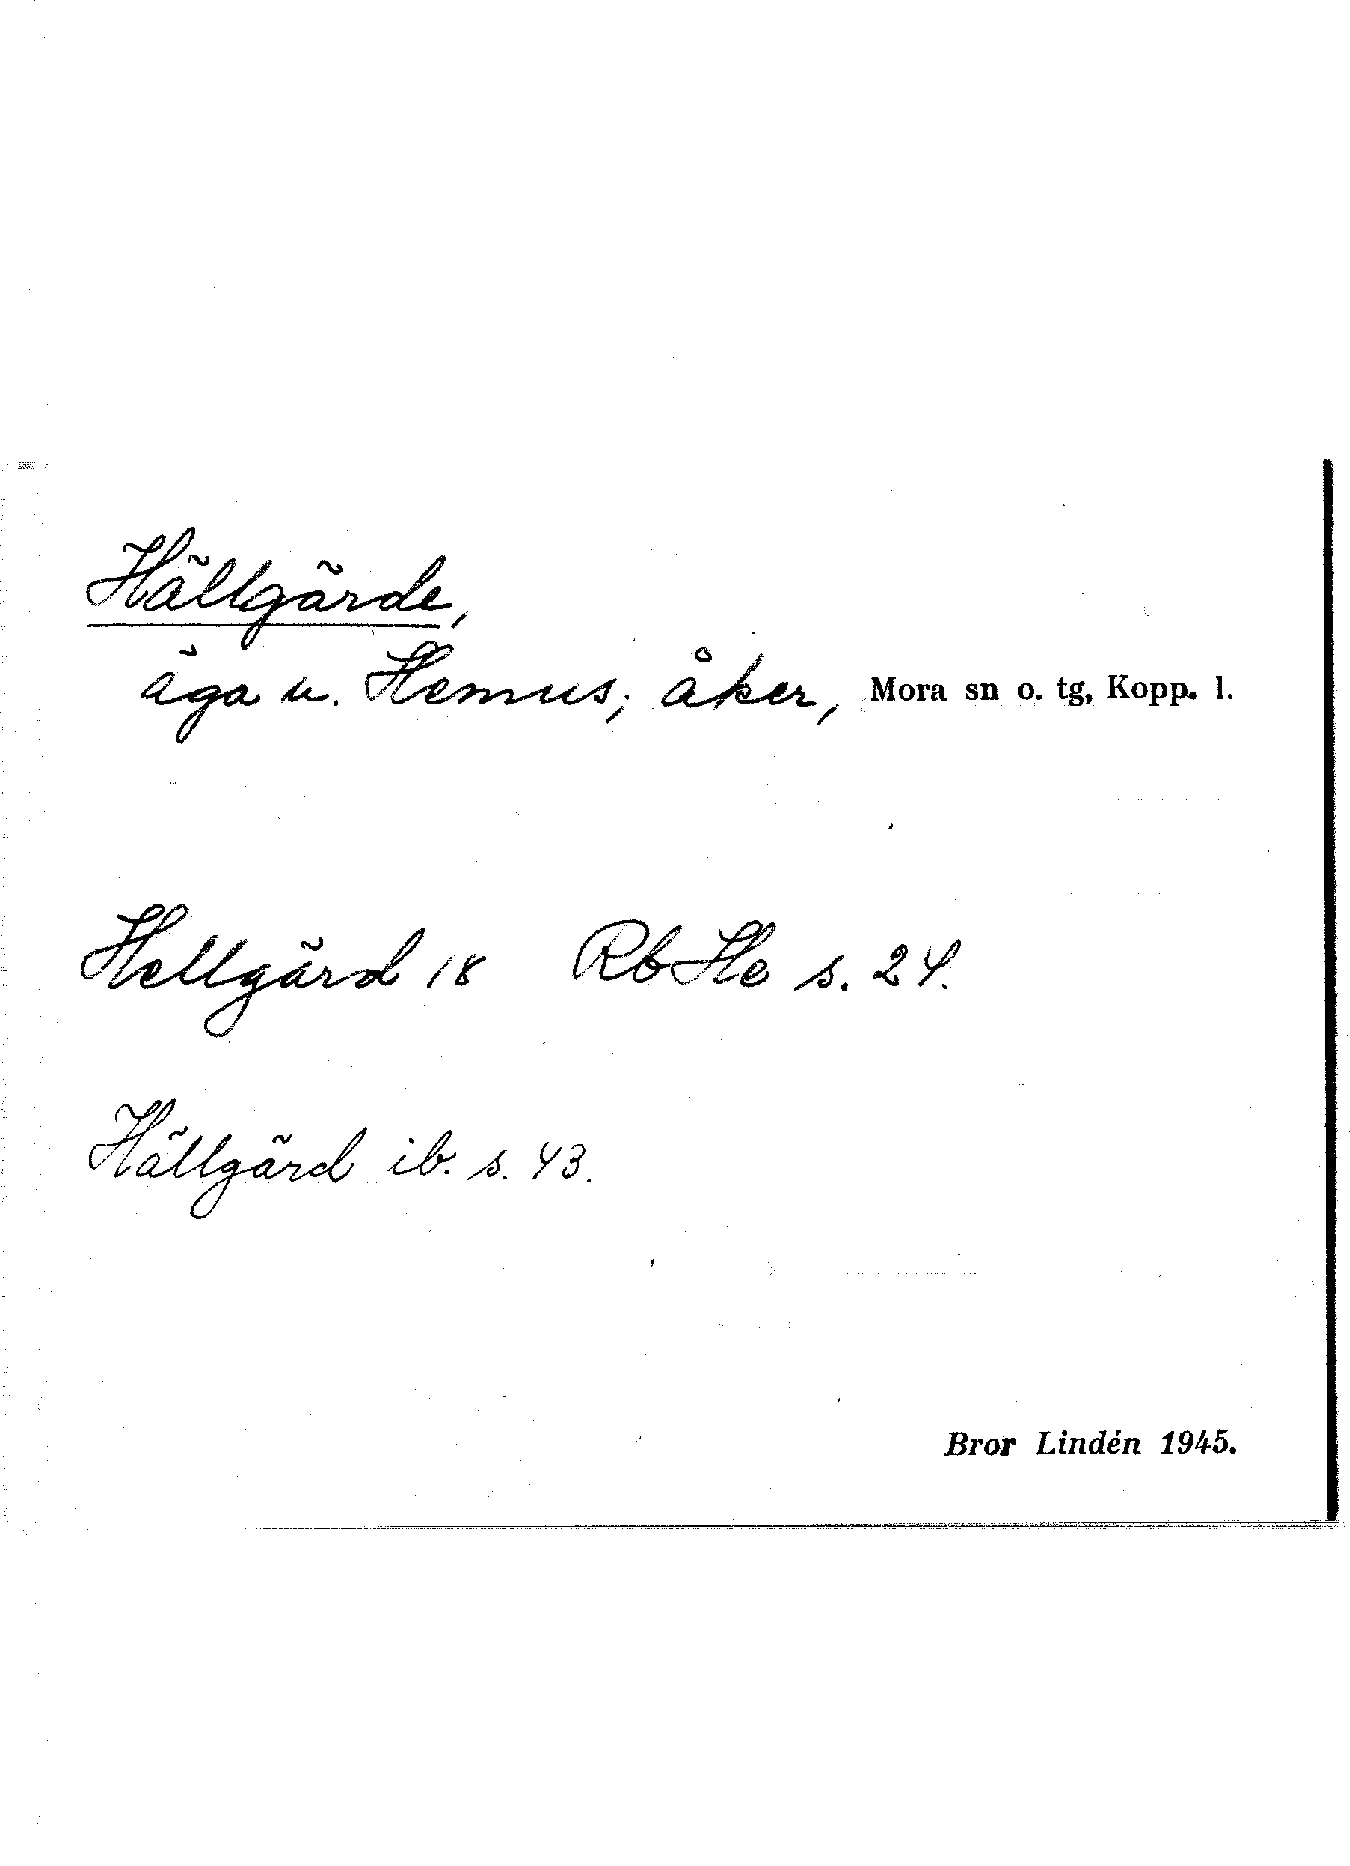 Hällgärde,
äga u. Hemus; åker, Mora sn o. tg, Kopp. l.
Hellgärd 18 Rb He s. 24.
Hällgärd ib. s. 43.
Bror Lindén 1945.